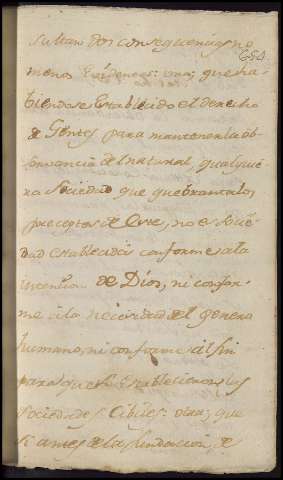 sultan dos consequencias no
654
menos evidentes: una; que ha-
biendose establecido el derecho
de Gentes para mantener la ob-
servancia del natural, qualquie-
ra Sociedad que quebranta los
preceptos de este, no es Socie-
dad establecida conforme a la
intencion de Dios, ni confor-
me a la necesidad del genero
humano, ni conforme al fin
para que se establecieron las
Sociedades Cibiles: otra; que
si antes de la fundacion de